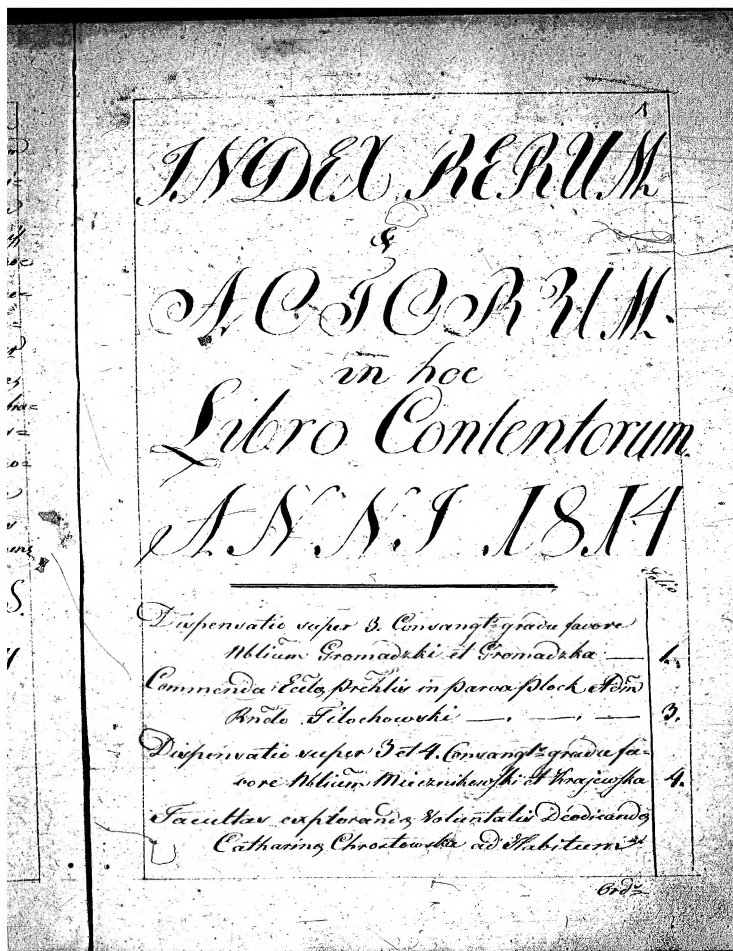 1
INDEX RERUM
&
ACTORUM.
in hoc
Libro Contentorum
ANNI 1814
Folio
Dispensatio super 3. Consangts gradu favore
Nblium Gromadzki et Gromadzka — 1.
Commenda Ecclae Prchlis in parva Plock Adm
Rndo Filochowski — . — . — 3.
Dispensatio super 3 et 4. Consangts gradu fa=
vore Nblium Miecznikowski et Krajewska 4.
Facultas explorandae Voluntatis Deodicandae
Catharinae Chrostowska ad Habitum